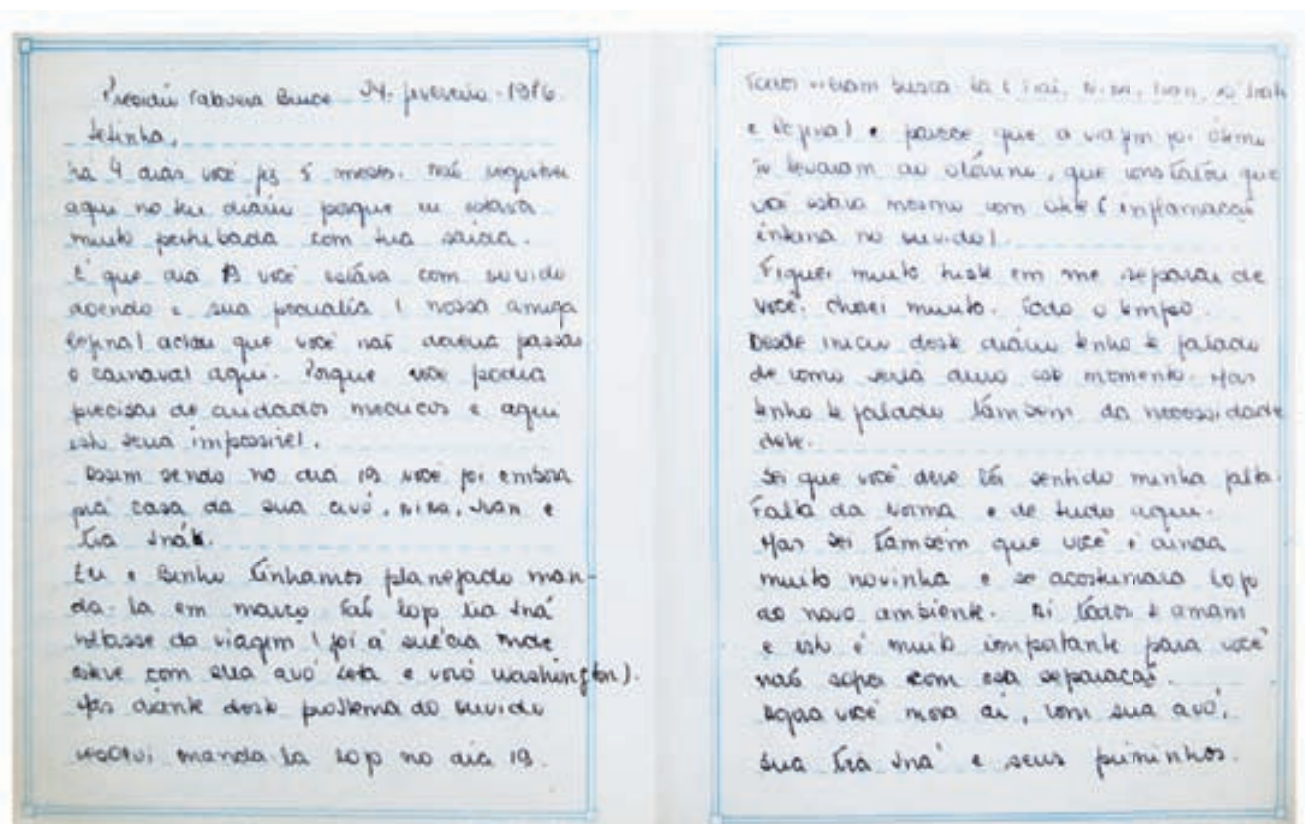 Presídio Talavera Bruce 24-fevereiro-1976.
Letinha,
há 4 dias você fez 5 meses. Não registrei
aqui no teu diário porque eu estava
muito perturbada com tua saída.
É que dia 18 você estava com ouvido
doendo e sua pediatra (nossa amiga
) achou que você não deveria passar
o carnaval aqui. Porque você podia
precisar de cuidados médicos e aqui
isto seria impossível.
Assim sendo no dia 19 você foi embora
pra casa da sua avó, Nina, Ivan e
tia Iná.
Eu e Binho tínhamos planejado man-
da-la em março tão logo tia Iná
voltasse da viagem (foi a suécia onde
esteve com sua avó Leta e vovô Washington).
Mas diante deste problema do ouvido
resolvi manda-la logo no dia 19.
Todos vieram busca-la (
e ) e parece que a viagem foi ótima
Te levaram ao otórino, que constatou que
você estava mesmo com otite (inflamação
interna no ouvido).
Fiquei muito triste em me separar de
você. Chorei muito. Todo o tempo.
Desde início deste diário tenho te falado
de como seria duro este momento. Mas
tenho te falado também da necessidade
dele.
Sei que você deve ter sentido minha falta.
Falta da Norma e de tudo aqui.
Mas sei também que você é ainda
muito novinha e se acostumará logo
ao novo ambiente. Aí todos te amam
e isto é muito importante para você
não sofrer com essa separação.
Agora você mora aí, com sua avó,
sua tia Iná e seus priminhos.